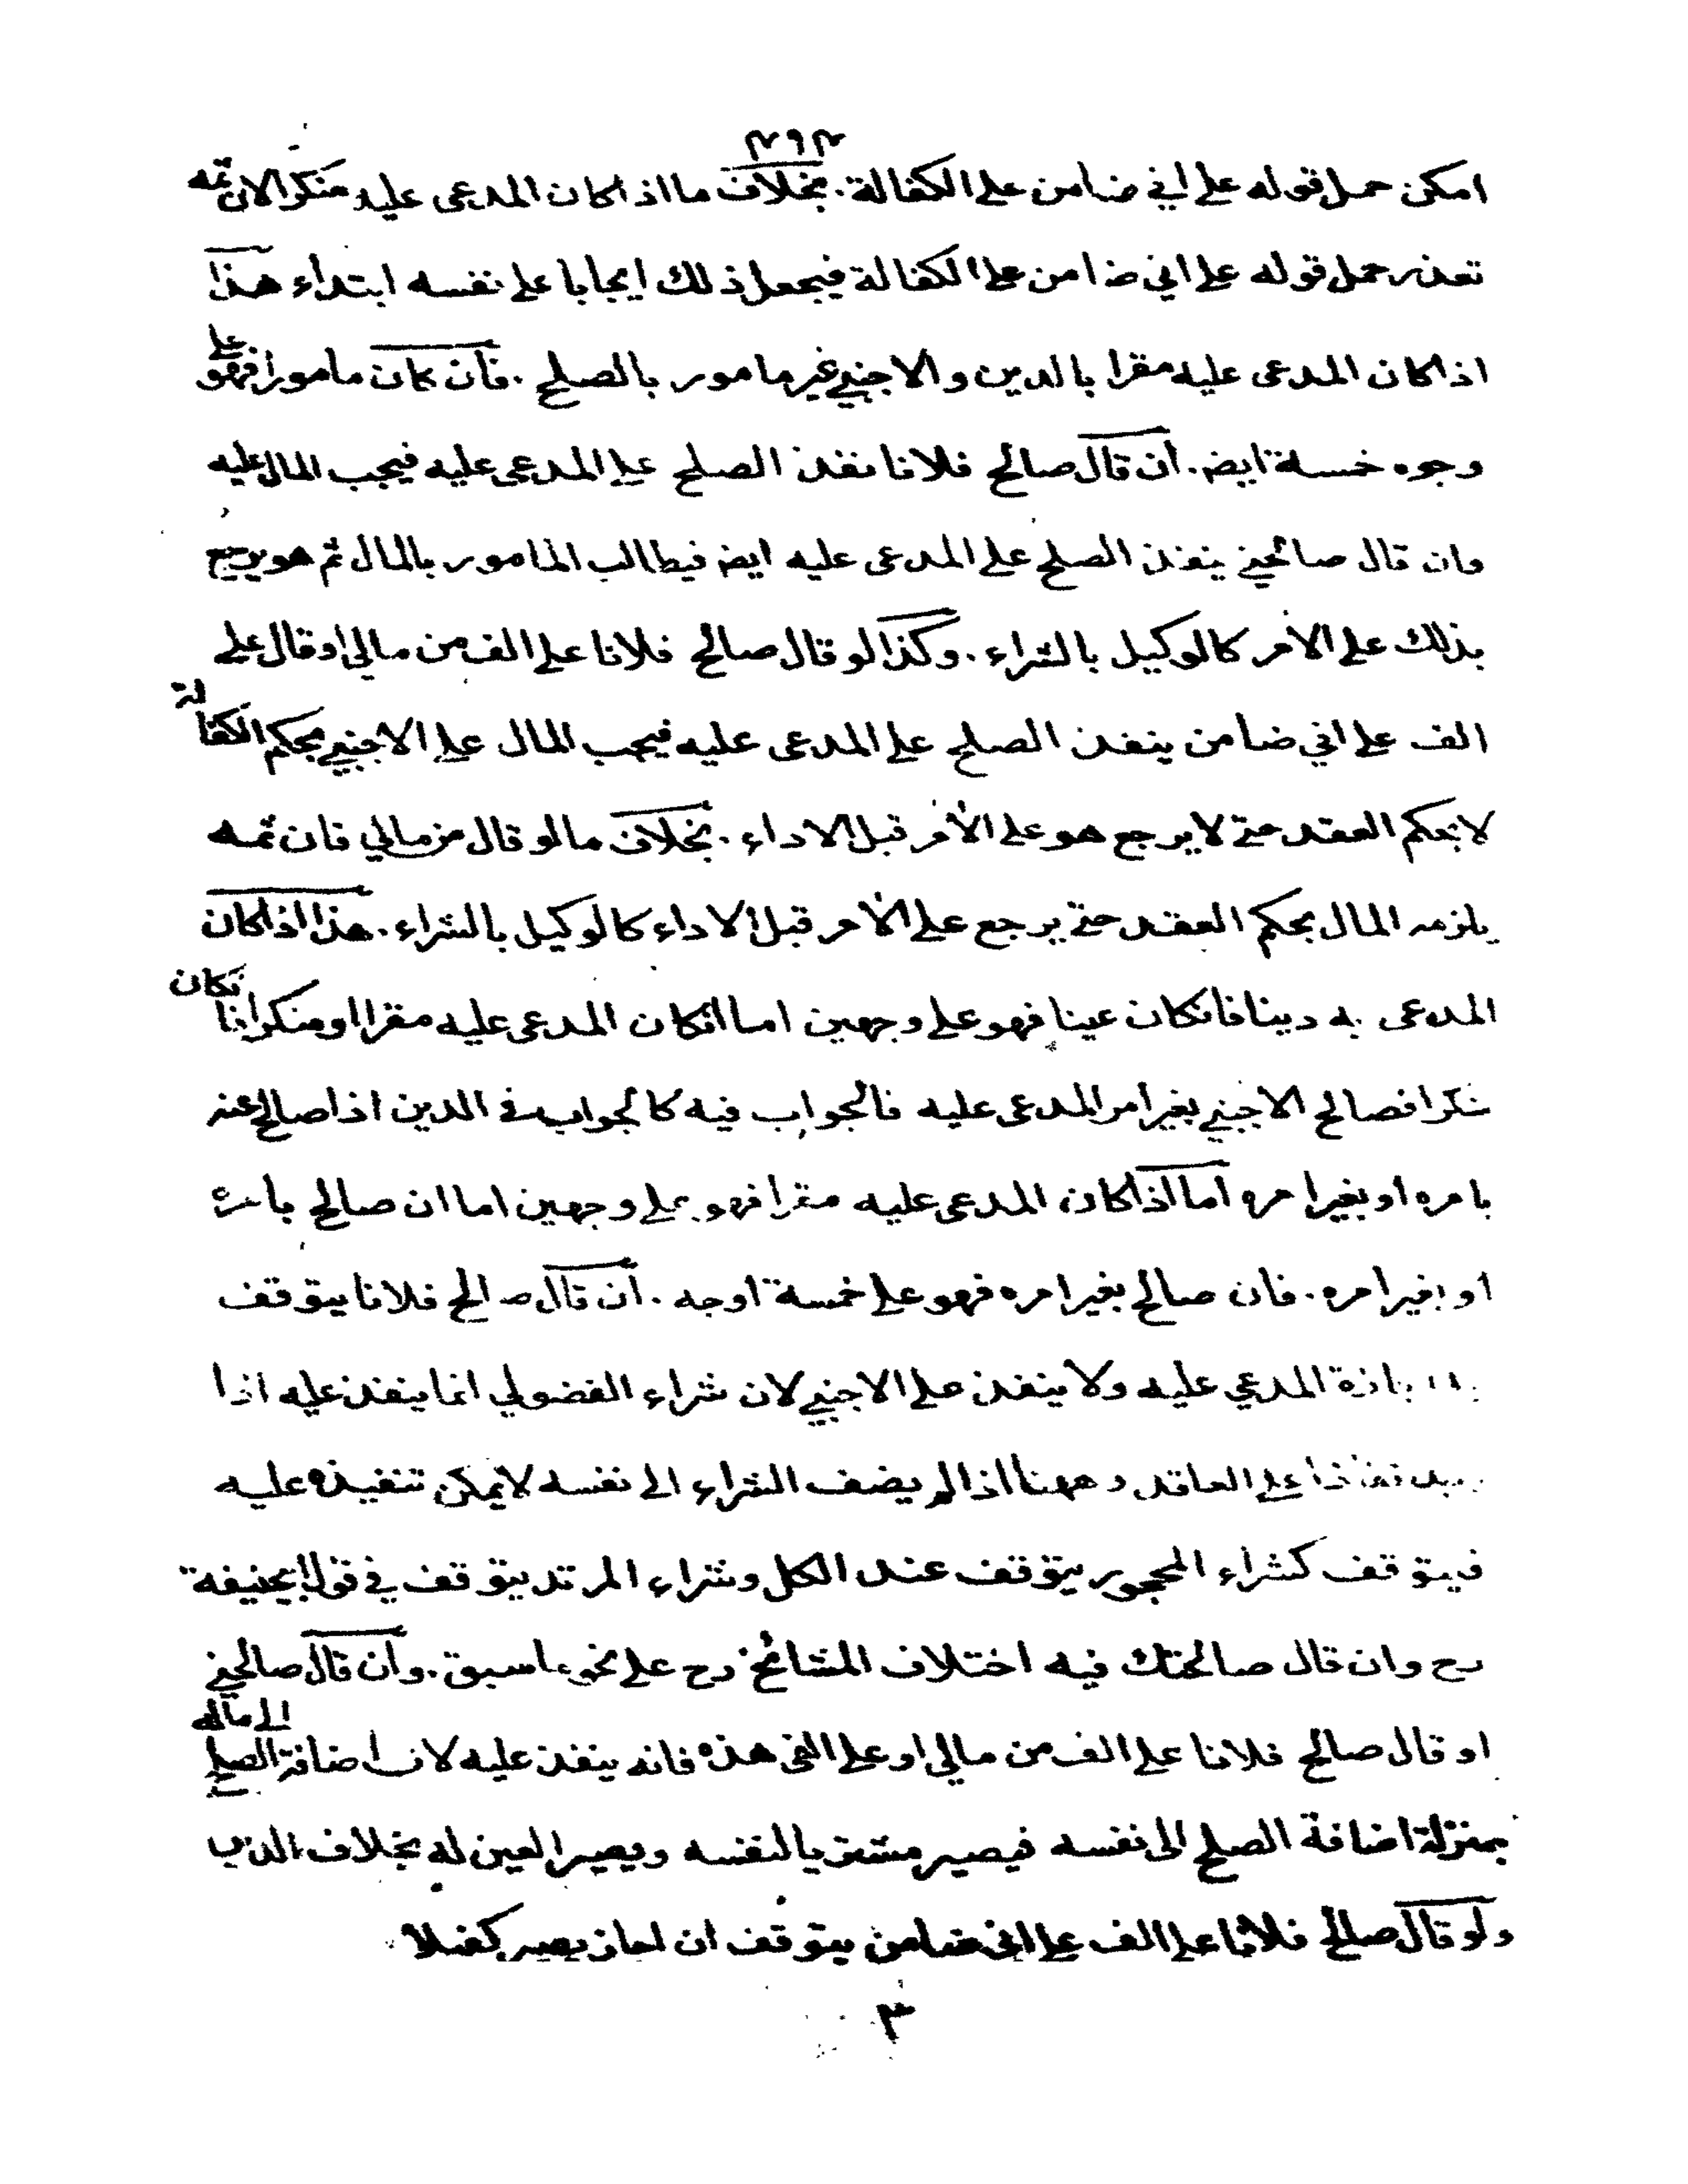 ٢٩٣
امكن حمل قوله على اني ضامن على الكفالة. بخلاف ما اذا كان المدعى عليه منكرا لان ثمه
تعذر حمل قوله على اني ضامن على الكفالة فيجعل ذلك ايجابا على نفسه ابتداء هذا
اذا كان المدعى عليه مقرا بالدين والاجنبي غير مامور بالصلح. فان كان مامورا فهو على
وجوه خمسة ايض. ان قال صالح فلانا نفذ الصلح على المدعى عليه فيجب المال عليه
وان قال صالحني ينفذ الصلح على المدعى عليه ايض فيطالب المامور بالمال ثم هو يرجع
بذلك على الأمر كالوكيل بالشراء. وكذا لو قال صالح فلانا على الف من مالي او قال على
الف على اني ضامن ينفذ الصلح على المدعى عليه فيجب المال على الاجنبي بحكم الكفالة
لا بحكم العقد حتى لا يرجع هو على الأمر قبل الاداء. بخلاف ما لو قال من مالي فان ثمه
يلزمه المال بحكم العقد حتى يرجع على الأمر قبل الاداء كالوكيل بالشراء. هذا اذا كان
المدعى به دينا فانكان عينا فهو على وجهين اما انكان المدعى عليه مقرا او منكرا فانكان
منكرا فصالح الاجنبي بغير امر المدعى عليه فالجواب فيه كالجواب في الدين اذا صالح عنه
بامره او بغير امره اما اذا كان المدعى عليه مقرا فهو على وجهين اما ان صالح بامره
او بغير امره. فان صالح بغير امره فهو على خمسة اوجه. ان قال صالح فلانا يتوقف
المدعي عليه ولا ينفذ على الاجنبي لان شراء الفضولي انما ينفذ عليه اذا
نفاذا على العاقد وههنا اذا لم يضف الشراء الى نفسه لا يمكن تنفيذه عليه
فيتوقف كشراء المحجور يتوقف عند الكل وشراء المرتد يتوقف في قول ابيحنيفة
رح وان قال صالحتك فيه اختلاف المشائخ رح على نحو ما سبق. وان قال صالحني
او قال صالح فلانا على الف من مالي او على الفى هذه فانه ينفذ عليه لان اضافة الصلح الى ماله
بمنزلة اضافة الصلح الى نفسه فيصير مشتريا لنفسه ويصير العين له بخلاف الدين
ولو قال صالح فلانا على الف على انى ضامن يتوقف ان اجاز يصير كفيلا
٣